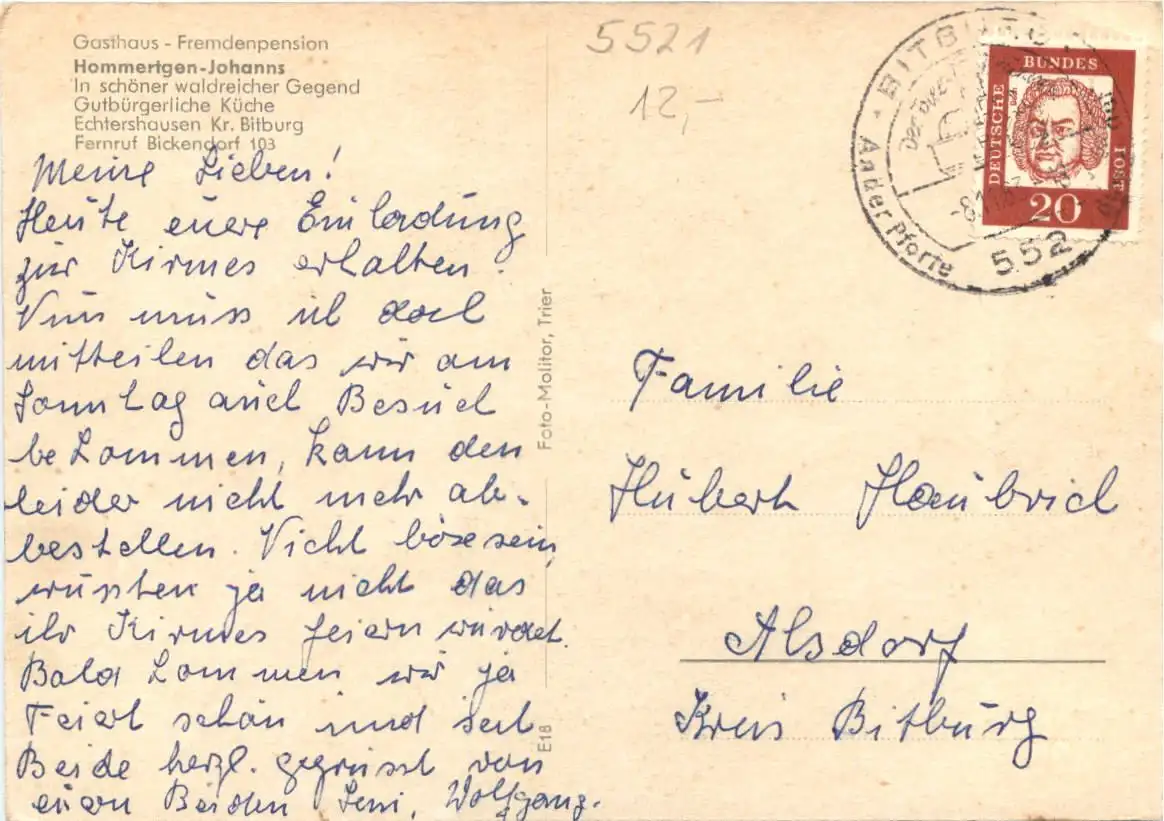 Gasthaus - Fremdenpension
Hommertgen-Johanns
In schöner waldreicher Gegend
Gutbürgerliche Küche
Echtershausen Kr. Bitburg
Fernruf Bickendorf 103
Meine Lieben!
Heute euere Einladung
zur Kirmes erhalten.
Nun muss ich doch
mitteilen das wir am
Sonntag auch Besuch
bekommen, kann den
leider nicht mehr ab-
bestellen. Nicht böse sein,
wusten ja nicht das
ihr Kirmes feiern würdet.
Bald kommen wir ja
Feiert schön und seit
Beide herzl. gegrüsst von
euern Beiden Leni, Wolfgang.
Foto-Molitor, Trier
E18
5521
12,-
BITBURG
An der Pforte
552
DEUTSCHE BUNDESPOST
20
Familie
Hubert Haubrich
Alsdorf
Kreis Bitburg